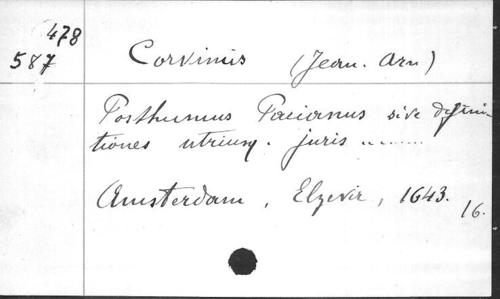 478
587
Corvinus (Jean. Arn)
Posthumus Pacianus sive defini
tiones utriusq. juris ........
Amsterdam, Elzevir, 1643.
16.